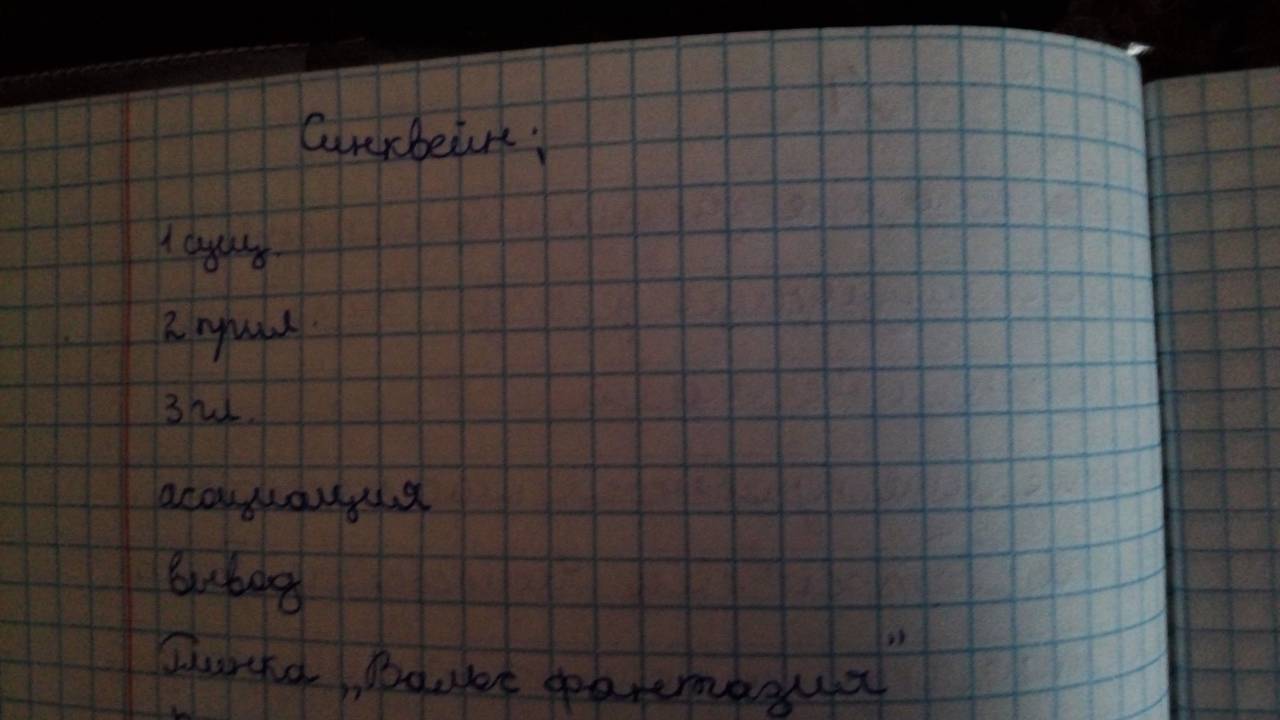 Синквейн;
1 сущ.
2 прил.
3 гл.
асоциация
вывод
Глинка „Вальс фантазия”